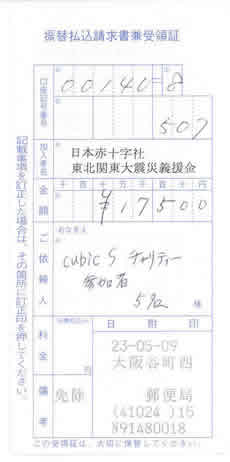 振替払込請求書兼受領証
口座記号番号
00140=8
507
加入者名
日本赤十字社
東北関東大震災義援金
金額
千百十万千百十円
¥17500
ご依頼人
おなまえ
cubic S チャリティー
参加者
5名 様
料金
円
日附印
23-05-09
大阪谷町四
郵便局
(41024)15
891480018
備考
免除
記載事項を訂正した場合は、その箇所に訂正印を押してください。
この受領証は、大切に保管してください。